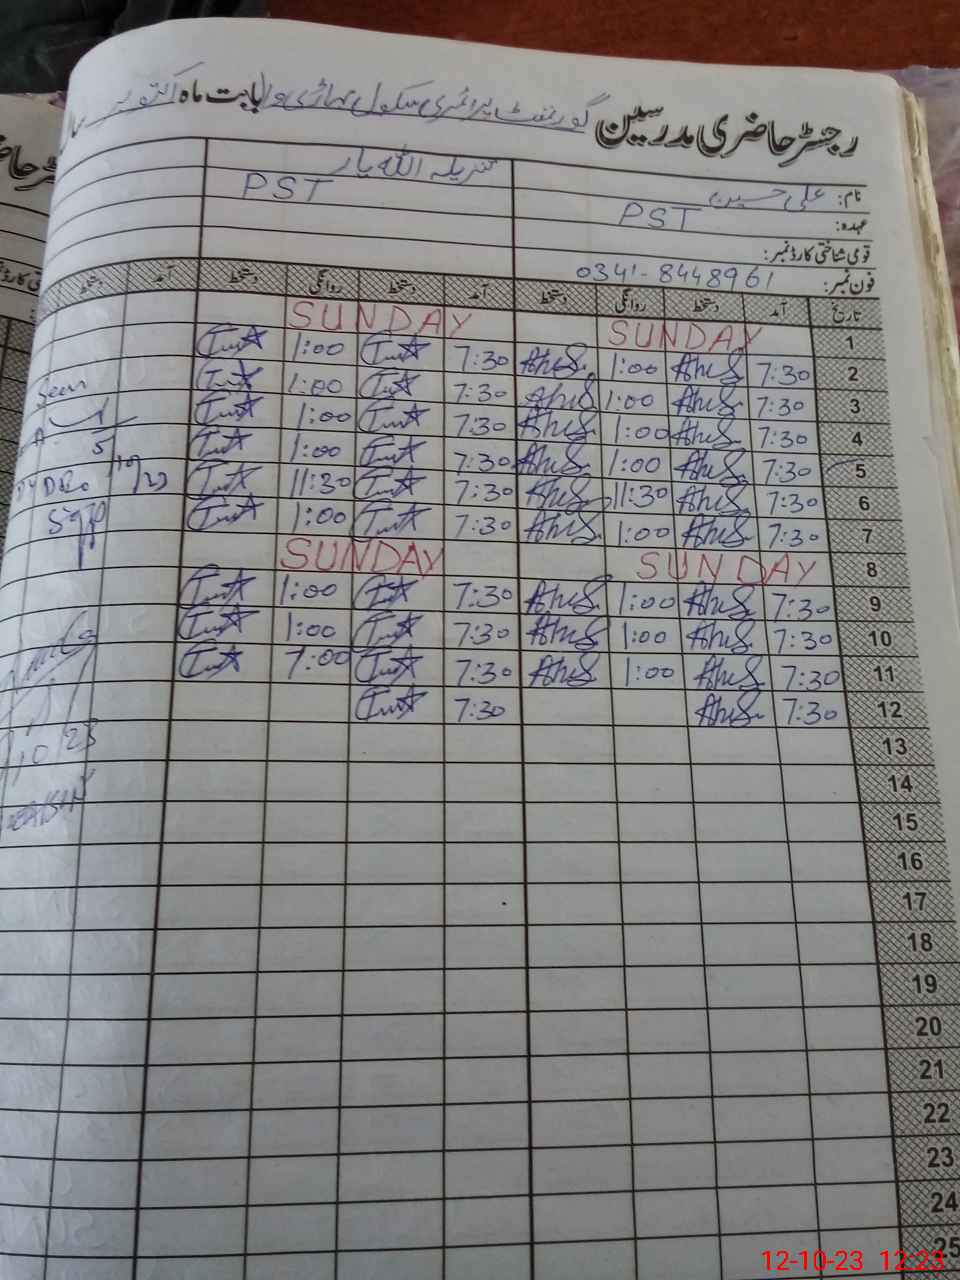 رجسٹر حاضری مدرسین گورنمنٹ پرائمری سکول بابت ماہ اکتوبر
نام: علی حسین اللہ یار
عہدہ: PST PST
قومی شناختی کارڈ نمبر:
فون نمبر: 0341-8448961
تاریخ آمد دستخط روانگی دستخط آمد دستخط روانگی دستخط آمد دستخط
1 SUNDAY SUNDAY
2 7:30 1:00 7:30 1:00
3 7:30 1:00 7:30 1:00
4 7:30 1:00 7:30 1:00
5 7:30 1:00 7:30 1:00
6 7:30 11:30 7:30 11:30
7 7:30 1:00 7:30 1:00
8 SUNDAY SUNDAY
9 7:30 1:00 7:30 1:00
10 7:30 1:00 7:30 1:00
11 7:30 1:00 7:30 1:00
12 7:30 7:30
13
14
15
16
17
18
19
20
21
22
23
24
25
Seen
12-10-23 12:23